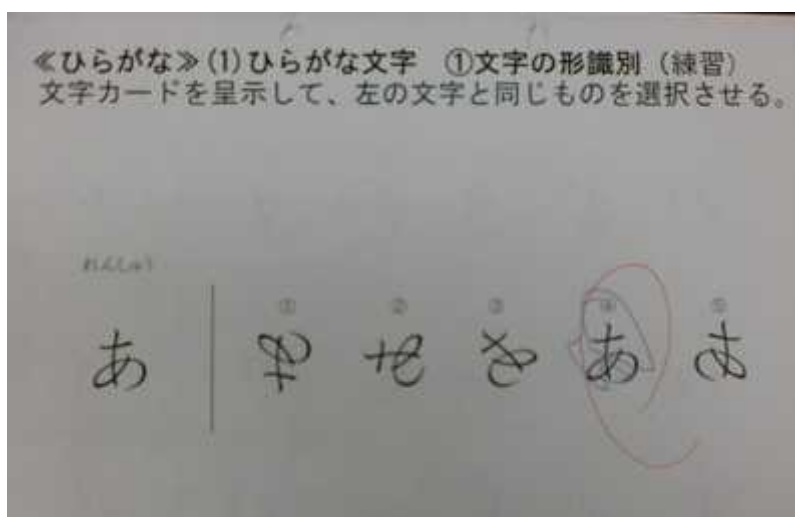 ≪ひらがな≫(1)ひらがな文字 ①文字の形識別(練習)
文字カードを呈示して、左の文字と同じものを選択させる。
れんしゅう
① ② ③ ④ ⑤
あ あ